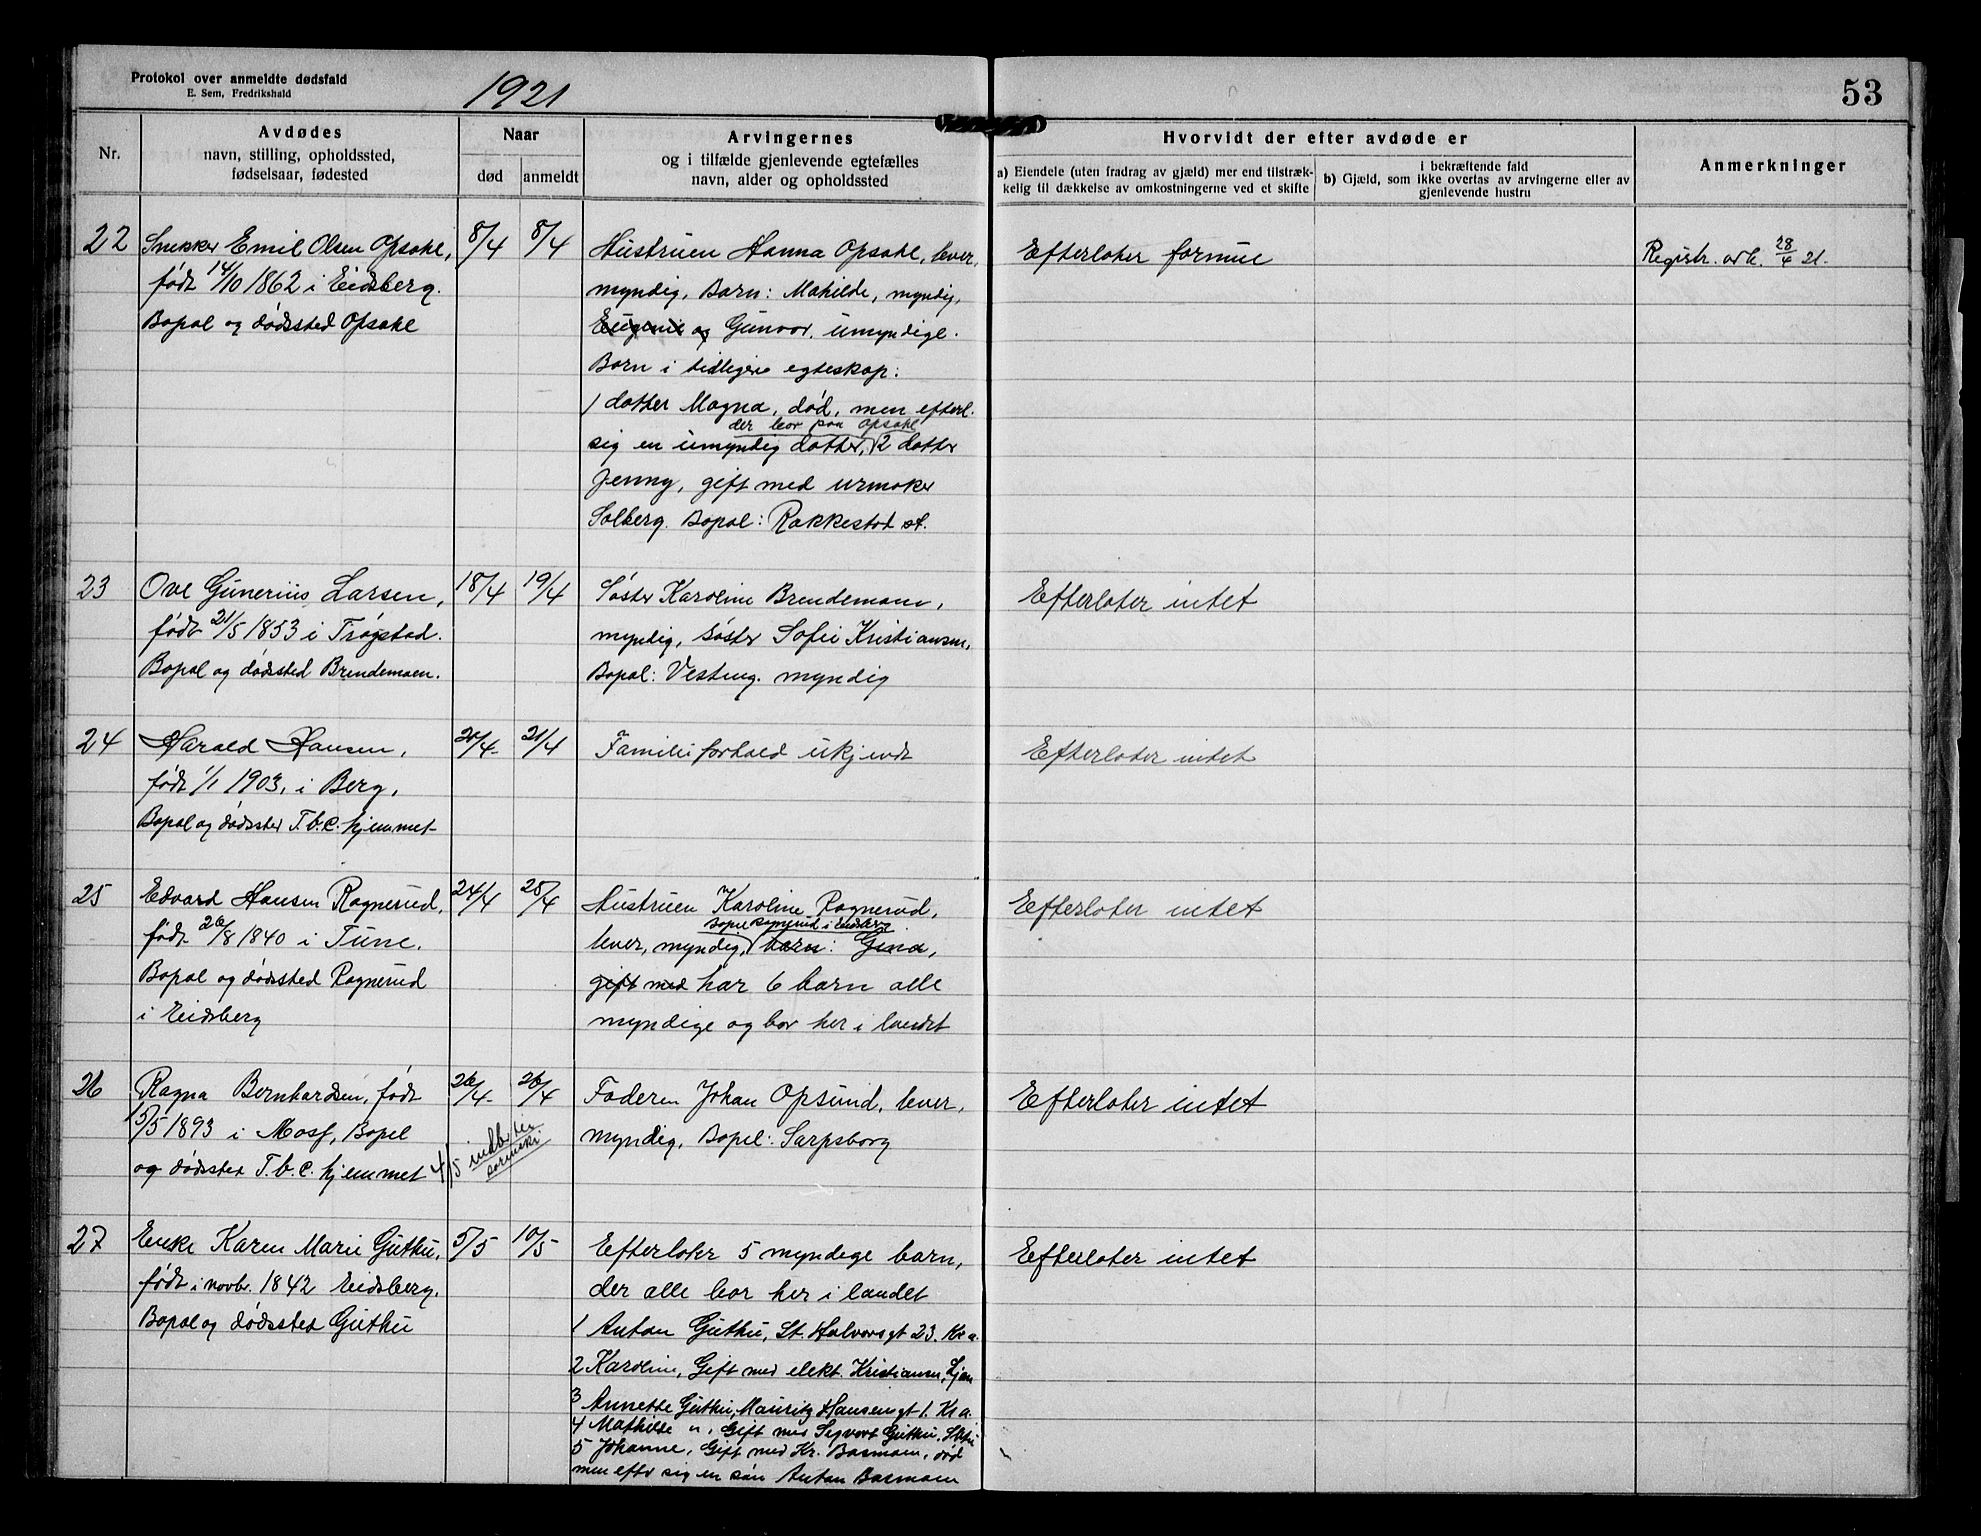 Protokol over anmeldte dødsfald
E. Sem, Fredrikshald
1921
53
Nr.
Avdødes
navn, stilling, opholdssted,
fødselsaar, fødested
Naar
død
anmeldt
Arvingernes
og i tilfælde gjenlevende egtefælles
navn, alder og opholdssted
Hvorvidt der efter avdøde er
a) Eiendele (uten fradrag av gjæld) mer end tilstræk-
kelig til dækkelse av omkostningerne ved et skifte
i bekræftende fald
b) Gjæld, som ikke overtas av arvingerne eller av
gjenlevende hustru
Anmerkninger
22
Snekker Emil Olsen Opsahl,
født 14/10 1862 i Eidsberg.
Bopæl og dødssted Opsahl
8/4
8/4
Hustruen Hanna Opsahl, lever,
myndig, Barn: Mathilde, myndig,
Eugenie og Gunvor, umyndige.
Barn i tidligere egteskap:
1 datter Magna, død, men efterl.
der bor paa Opsahl
sig en umyndig datter, 2 datter
Jenny, gift med urmaker
Solberg. Bopæl: Rakkestad st.
Efterlater formue
Registr. avh. 28/4 21.
23
Ove Gunerius Larsen,
født 21/5 1853 i Trøgstad.
Bopæl og dødssted Brendemoen.
18/4
19/4
Søster Karoline Brendemoen,
myndig, søster Sofie Kristiansen,
Bopæl: Vesteng. myndig
Efterlater intet
24
Harald Hansen,
født 1/1 1903, i Berg,
Bopæl og dødssted T.b.c. hjemmet
20/4
21/4
Familieforhold ukjendt
Efterlater intet
25
Edvard Hansen Ragnerud,
født 26/8 1840 i Tune.
Bopæl og dødssted Ragnerud
i Eidsberg
24/4
25/4
Hustruen Karoline Ragnerud,
bopæl Ragnerud i Eidsberg
lever, myndig, barn: Gina,
gift med har 6 barn alle
myndige og bor her i landet
Efterlater intet
26
Ragna Bernhardsen, født
15/5 1893 i Moss, Bopæl
og dødssted T.b.c. hjemmet
26/4
26/4
4/5 indb. til
Faderen Johan Opsund, lever,
myndig, Bopæl: Sarpsborg
Efterlater intet
27
Enke Karen Marie Guthu,
født i novbr. 1842 Eidsberg.
Bopæl og dødssted Guthu
5/5
10/5
Efterlater 5 myndige barn,
der alle bor her i landet
1 Anton Guthu, St. Halvorsgt 23. Kr.a.
2 Karoline, Gift med elekt. Kristiansen,
3 Annette Guthu, Mauritz Hansengt 1. Kr a.
4 Mathilde ", Gift med Sigvart Guthu,
5 Johanne, Gift med Kr. Basmoen, død
men efter sig en søn Anton Basmoen
Efterlater intet